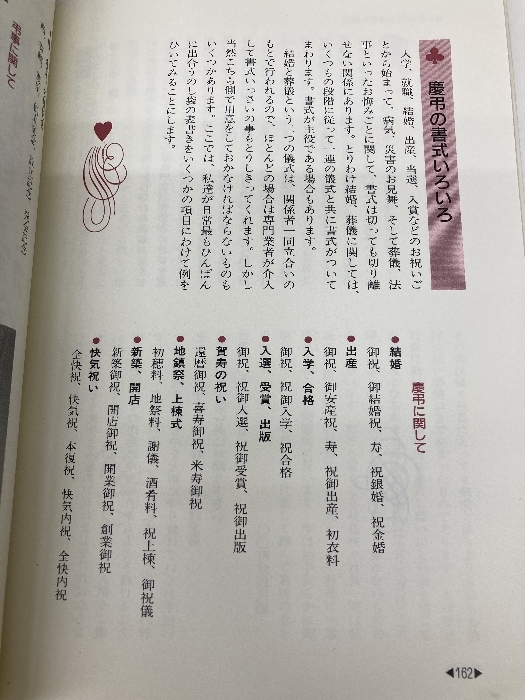 慶弔の書式いろいろ
入学、就職、結婚、出産、当選、入賞などのお祝いご
とから始まって、病気、災害のお見舞、そして葬儀、法
事といったお悔みごとに関して、書式は切っても切り離
せない関係にあります。とりわけ結婚、葬儀に関しては、
いくつもの段階に従って一連の儀式と共に書式がついて
まわります。書式が主役である場合もあります。
結婚と葬儀という二つの儀式は、関係者一同立合いの
もとで行われるので、ほとんどの場合は専門業者が介入
して書式いっさいの事もとりしきってくれます。しかし
当然こちら側で用意をしておかなければならないものも
いくつかあります。ここでは、私達が日常最もひんぱん
に出合うのし袋の表書きをいくつかの項目にわけて例を
ひいてみることにします。
慶弔に関して
●結婚
御祝、御結婚祝、寿、祝銀婚、祝金婚
●出産
御祝、御安産祝、寿、祝御出産、初衣料
●入学、合格
御祝、祝御入学、祝合格
●入選、受賞、出版
御祝、祝御入選、祝御受賞、祝御出版
●賀寿の祝い
還暦御祝、喜寿御祝、米寿御祝
●地鎮祭、上棟式
初穂料、地祭料、謝儀、酒肴料、祝上棟、御祝儀
●新築、開店
新築御祝、開店御祝、開業御祝、創業御祝
●快気祝い
全快祝、快気祝、本復祝、快気内祝、全快内祝
◀162▶
弔事に関して